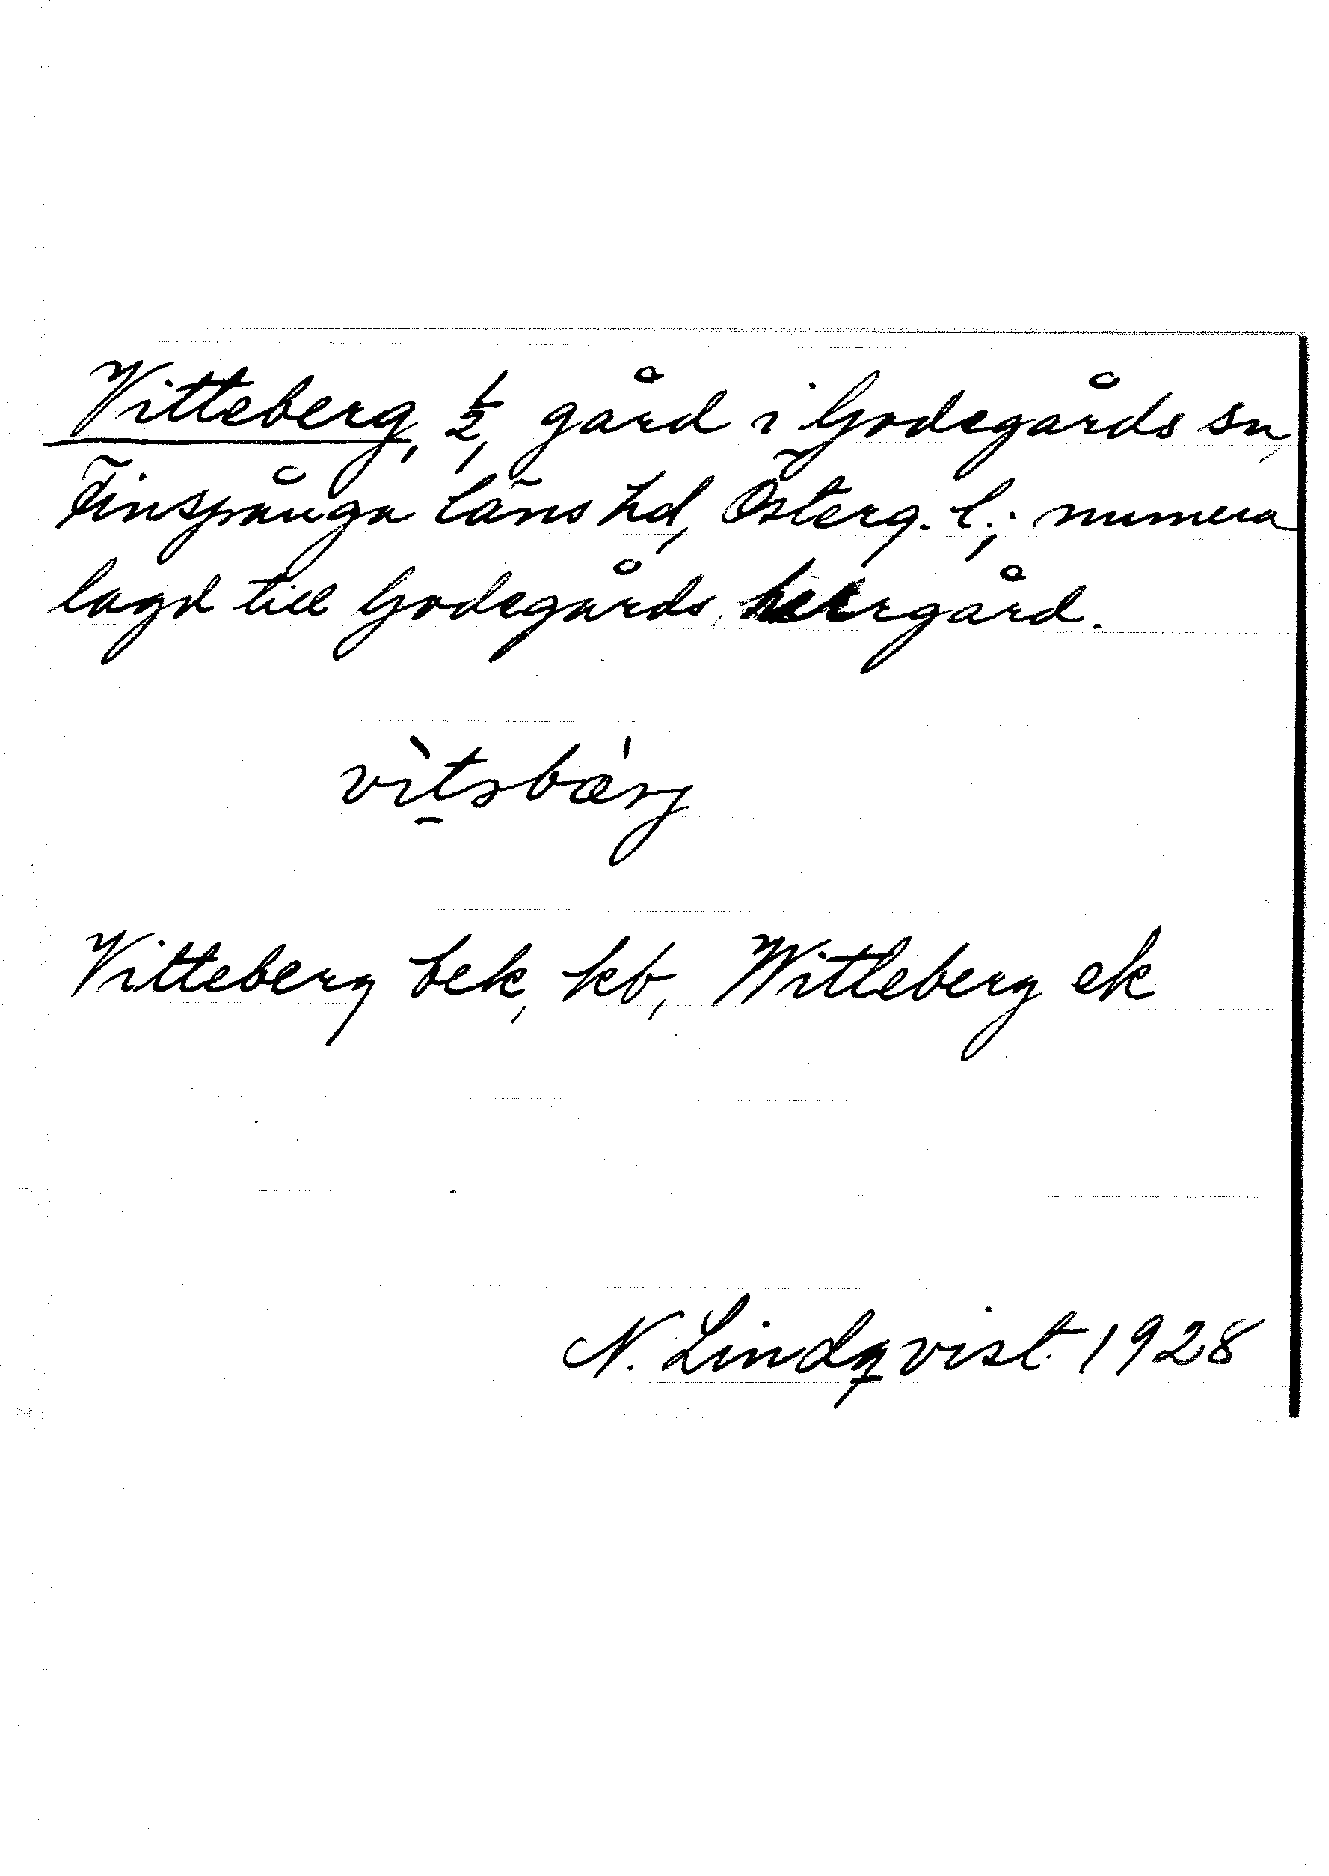 Vitteberg, 1/2, gård i Godegårds sn,
Finspånga läns hd, Österg. l.; numera
lagd till Godegårds herrgård.
vìt̠sbær̍j
Vitteberg bek, kb, Witteberg ek
N. Lindqvist 1928